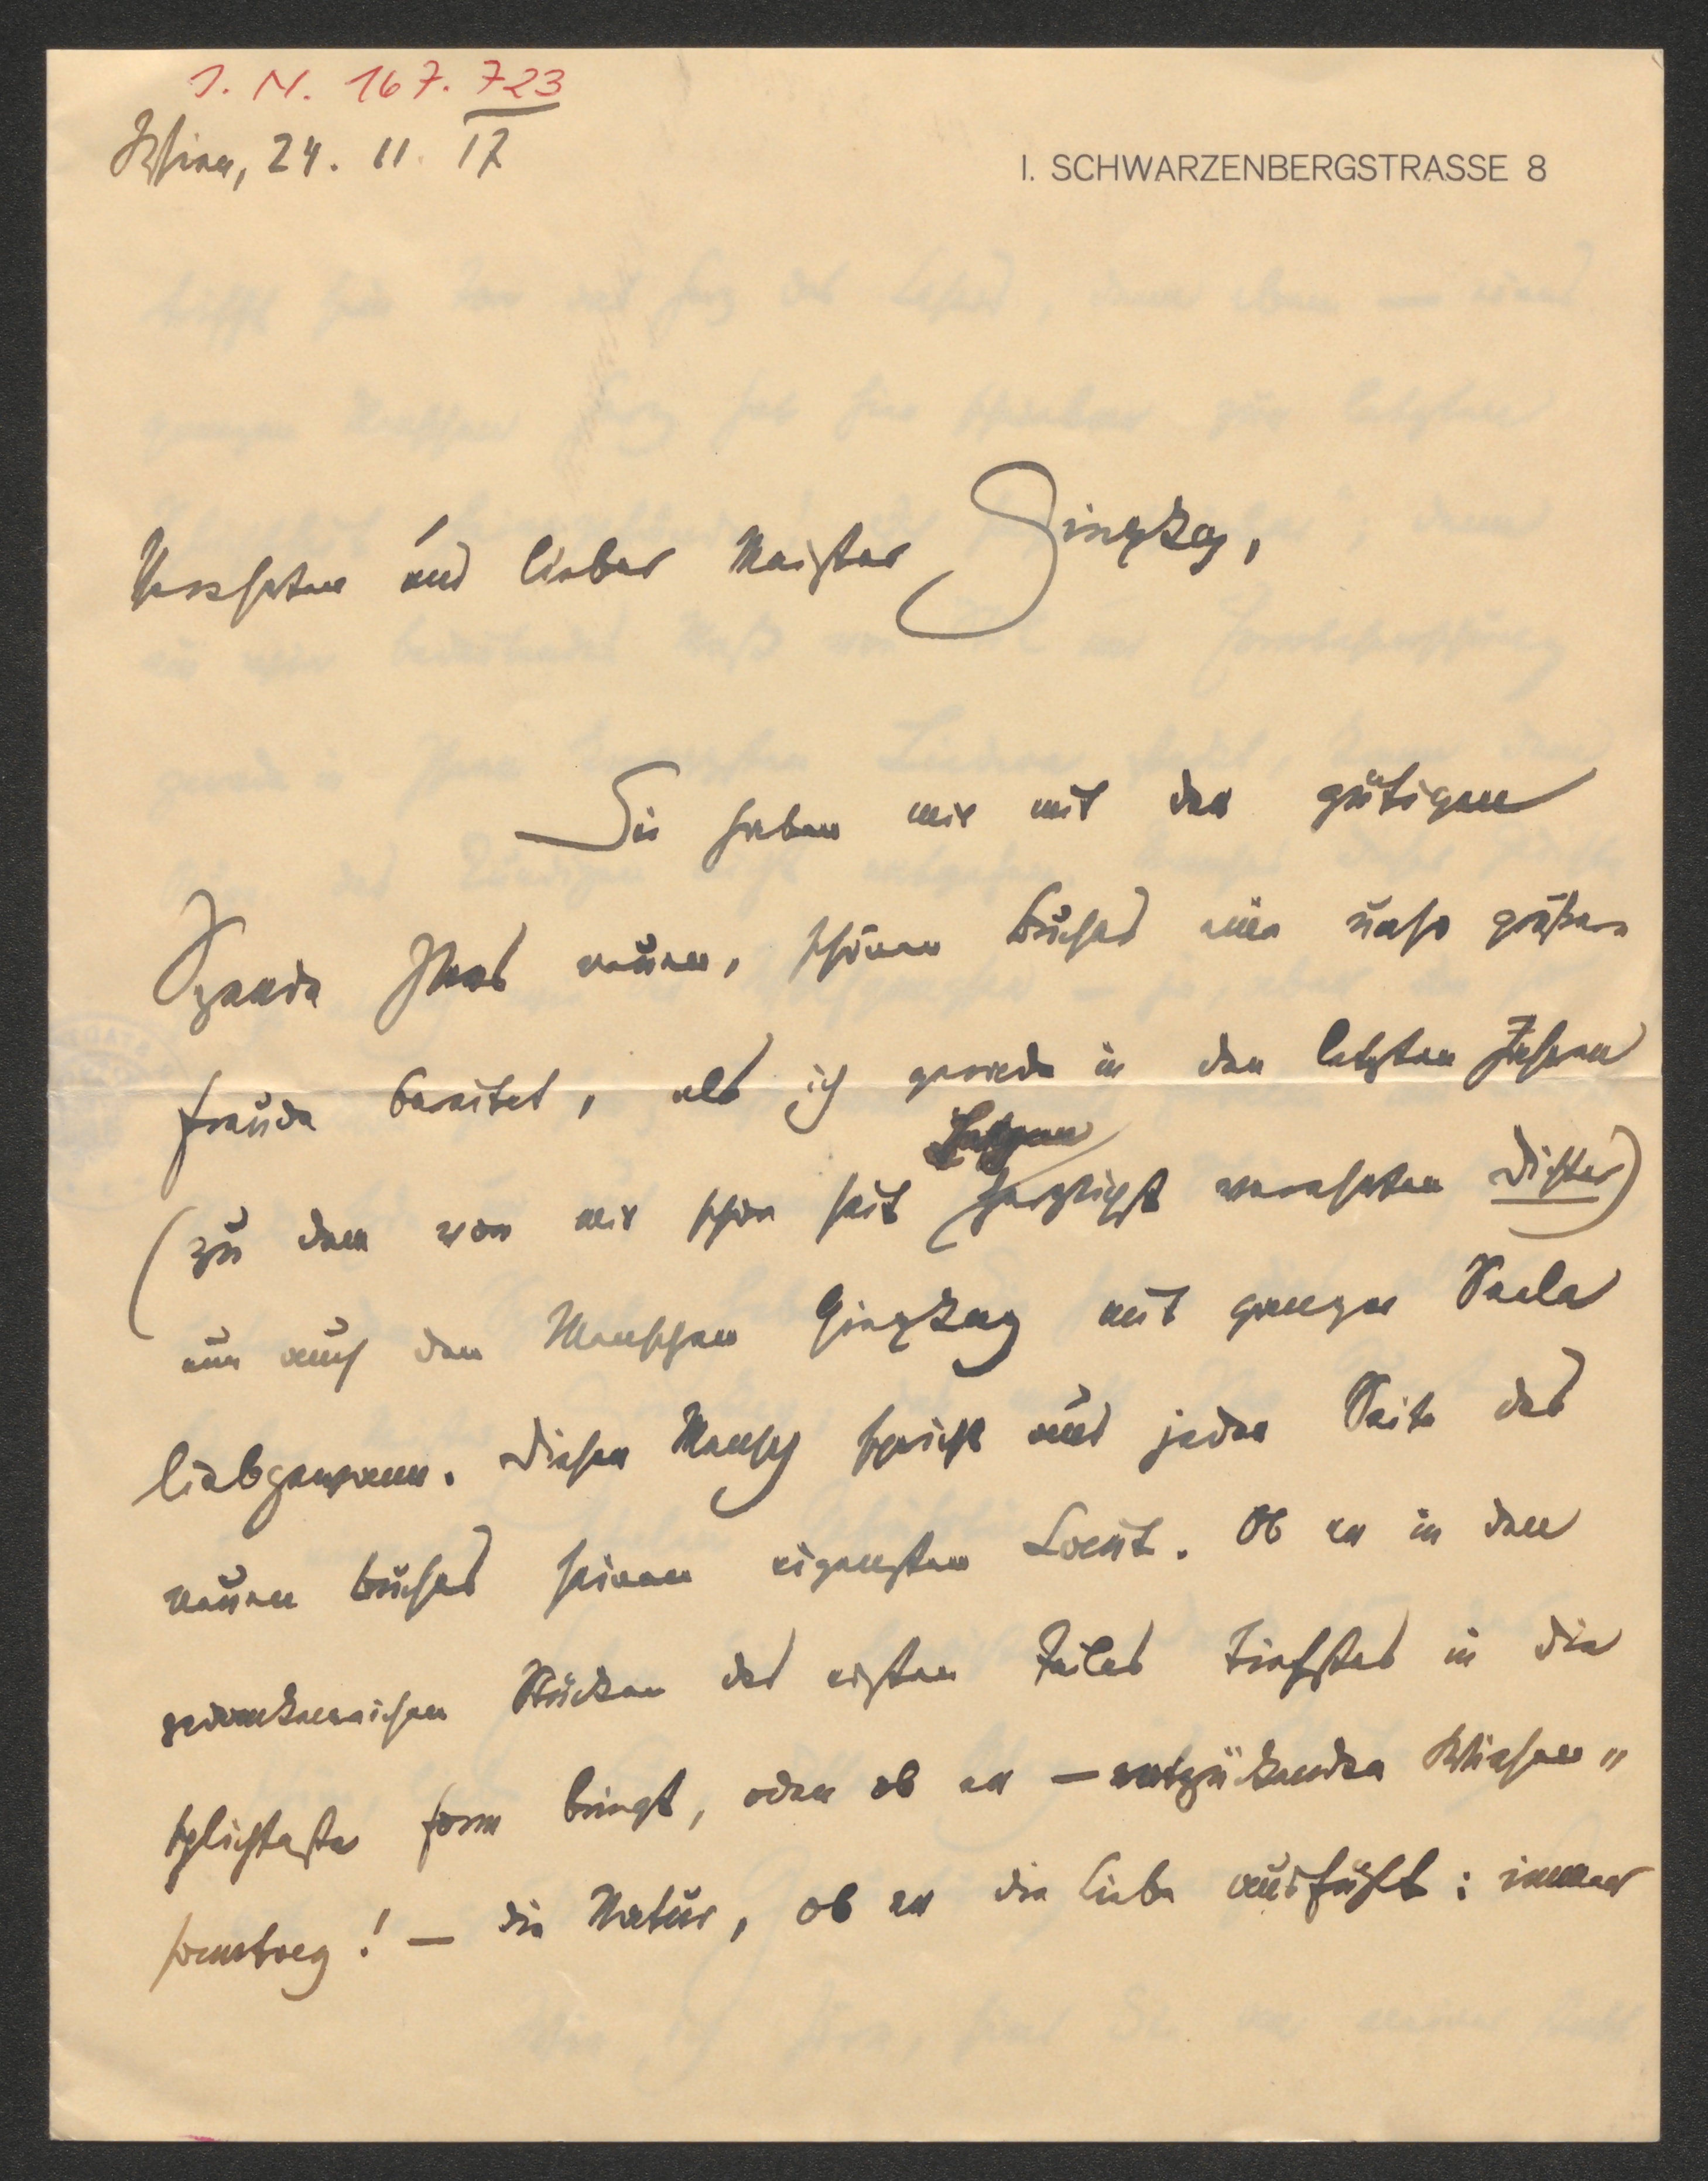 J. N. 167.723
Wien, 24. 11. 17
I. SCHWARZENBERGSTRASSE 8
Verehrter und lieber Meister Ginzkey,
Sie haben mir mit der gütigen
Spende Ihres neuen, schönen Buches eine umso größere
Freude bereitet, als ich gerade in den letzten Jahren
(zu dem von mir schon seit Langem herzlichst verehrten Dichter)
nun auch den Menschen Ginzkey mit ganzer Seele
liebgewann. Dieser Mensch spricht aus jeder Seite des
neuen Buches seinen eigensten Laut. Ob er in den
gedankenreichen Stücken des ersten Teiles Tiefstes in die
schlichteste Form bringt, oder ob er – entzückender Wiesen"
samstag! – die Natur, ob er die Liebe ausfühlt: immer